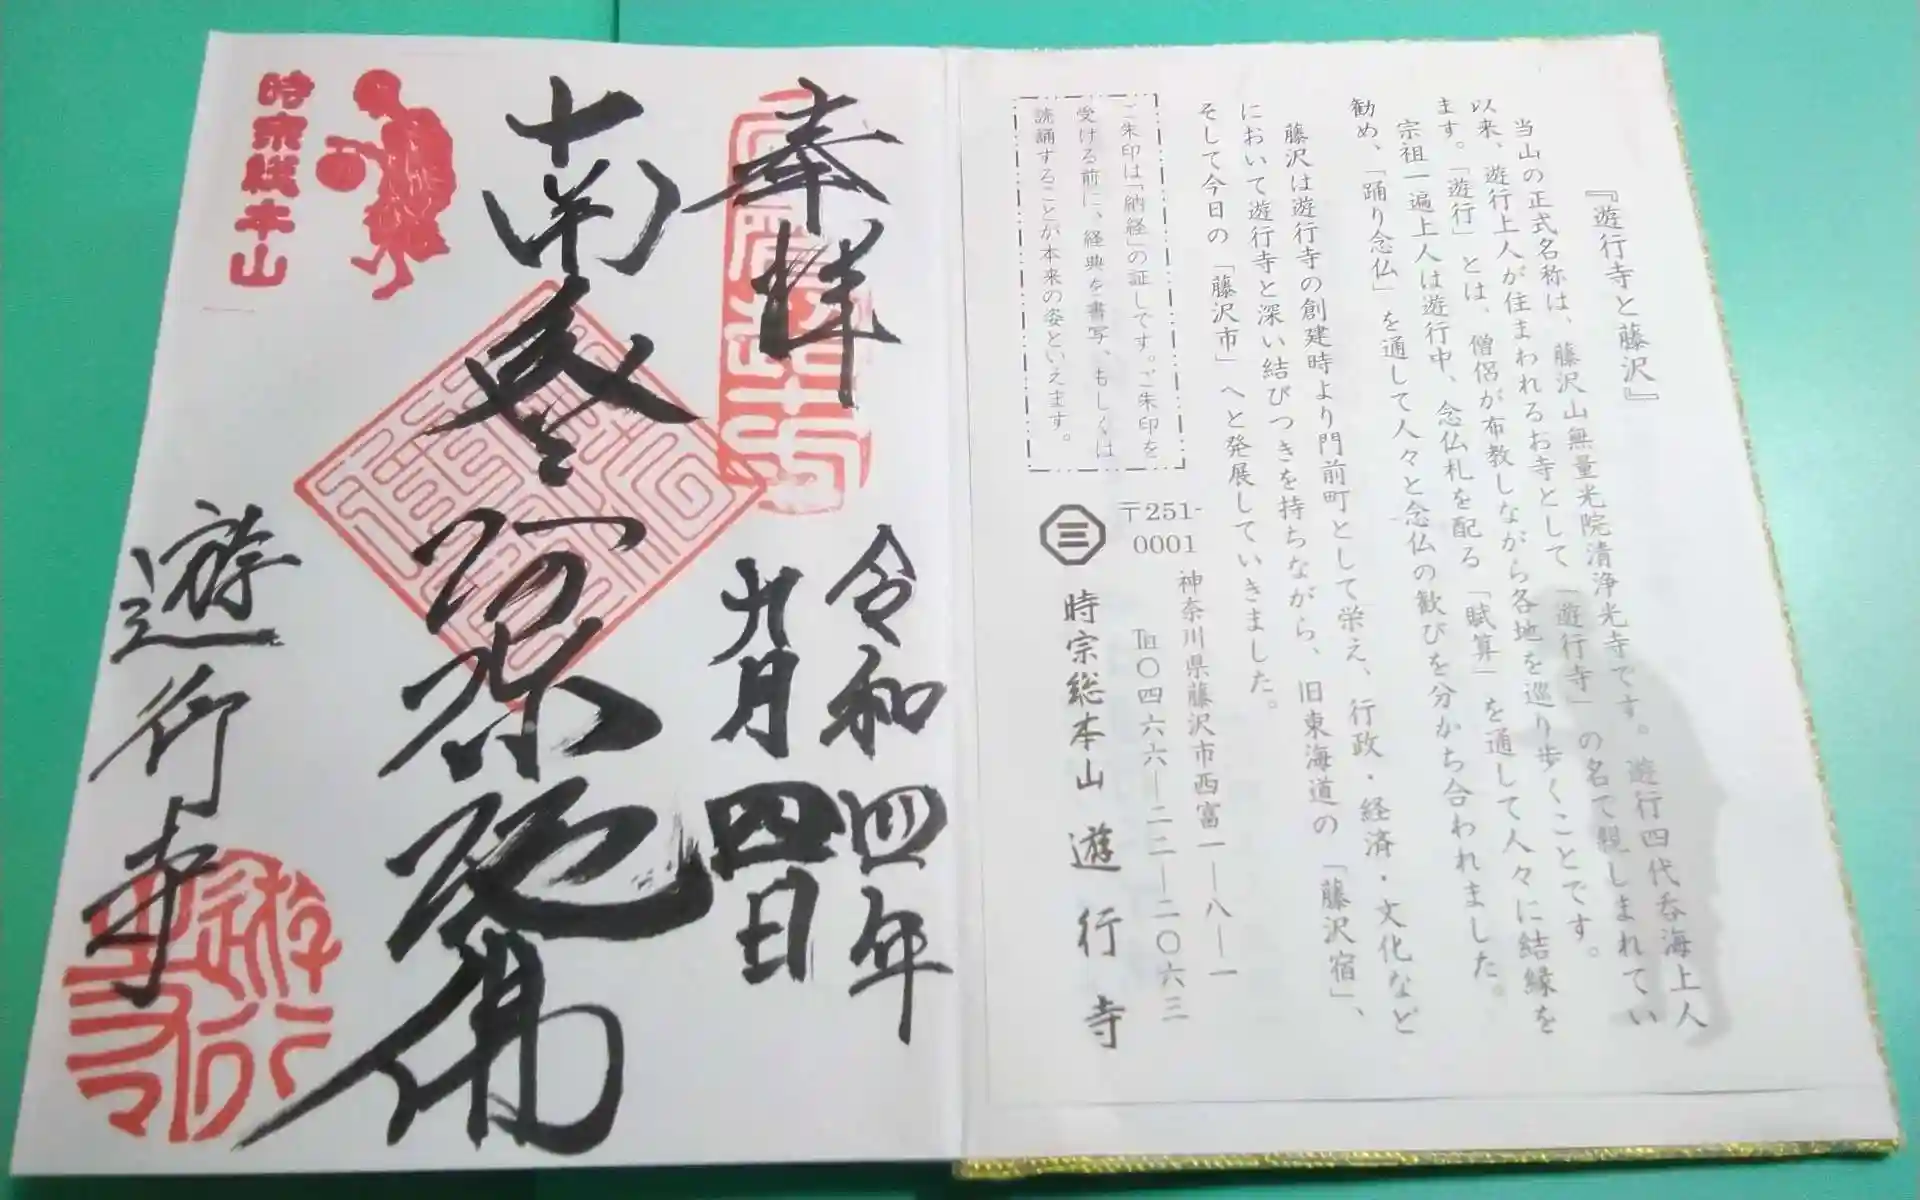 『遊行寺と藤沢』
当山の正式名称は、藤沢山無量光院清浄光寺です。遊行四代呑海上人
以来、遊行上人が住まわれるお寺として「遊行寺」の名で親しまれてい
ます。「遊行」とは、僧侶が布教しながら各地を巡り歩くことです。
宗祖一遍上人は遊行中、念仏札を配る「賦算」を通して人々に結縁を
勧め、「踊り念仏」を通して人々と念仏の歓びを分かち合われました。
藤沢は遊行寺の創建時より門前町として栄え、行政・経済・文化など
において遊行寺と深い結びつきを持ちながら、旧東海道の「藤沢宿」、
そして今日の「藤沢市」へと発展していきました。
ご朱印は「納経」の証しです。ご朱印を
受ける前に、経典を書写、もしくは
読誦することが本来の姿といえます。
〒251-
0001
神奈川県藤沢市西富一―八―一
℡〇四六六―二二―二〇六三
三
時宗総本山 遊行寺
奉拝
令和四年
九月四日
南無阿弥陀佛
時宗総本山
遊行寺